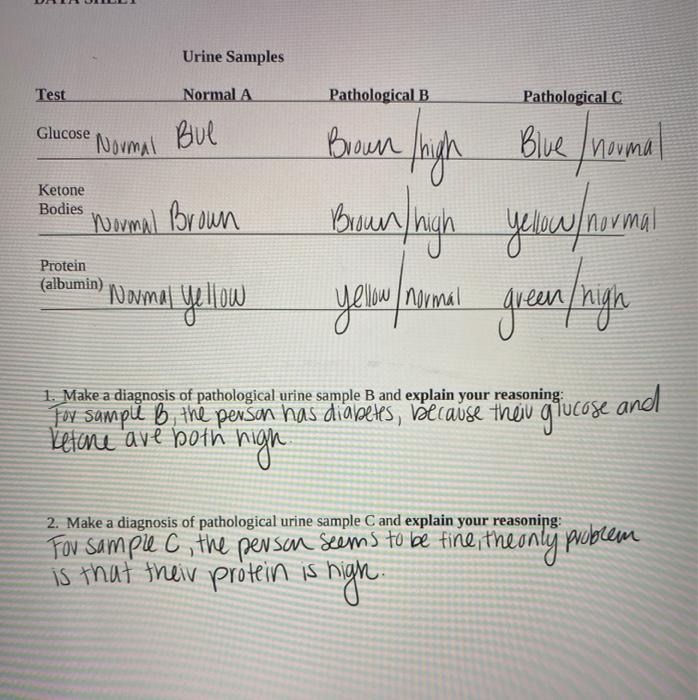 DATA SHEET
Urine Samples
Test Normal A Pathological B Pathological C
Glucose Normal Blue Brown/high Blue/normal
Ketone
Bodies Normal Brown Brown/high yellow/normal
Protein
(albumin) Normal yellow yellow/normal green/high
1. Make a diagnosis of pathological urine sample B and explain your reasoning:
For sample B, the person has diabetes, because their glucose and
ketone are both high.
2. Make a diagnosis of pathological urine sample C and explain your reasoning:
For sample C, the person seems to be fine, the only problem
is that their protein is high.